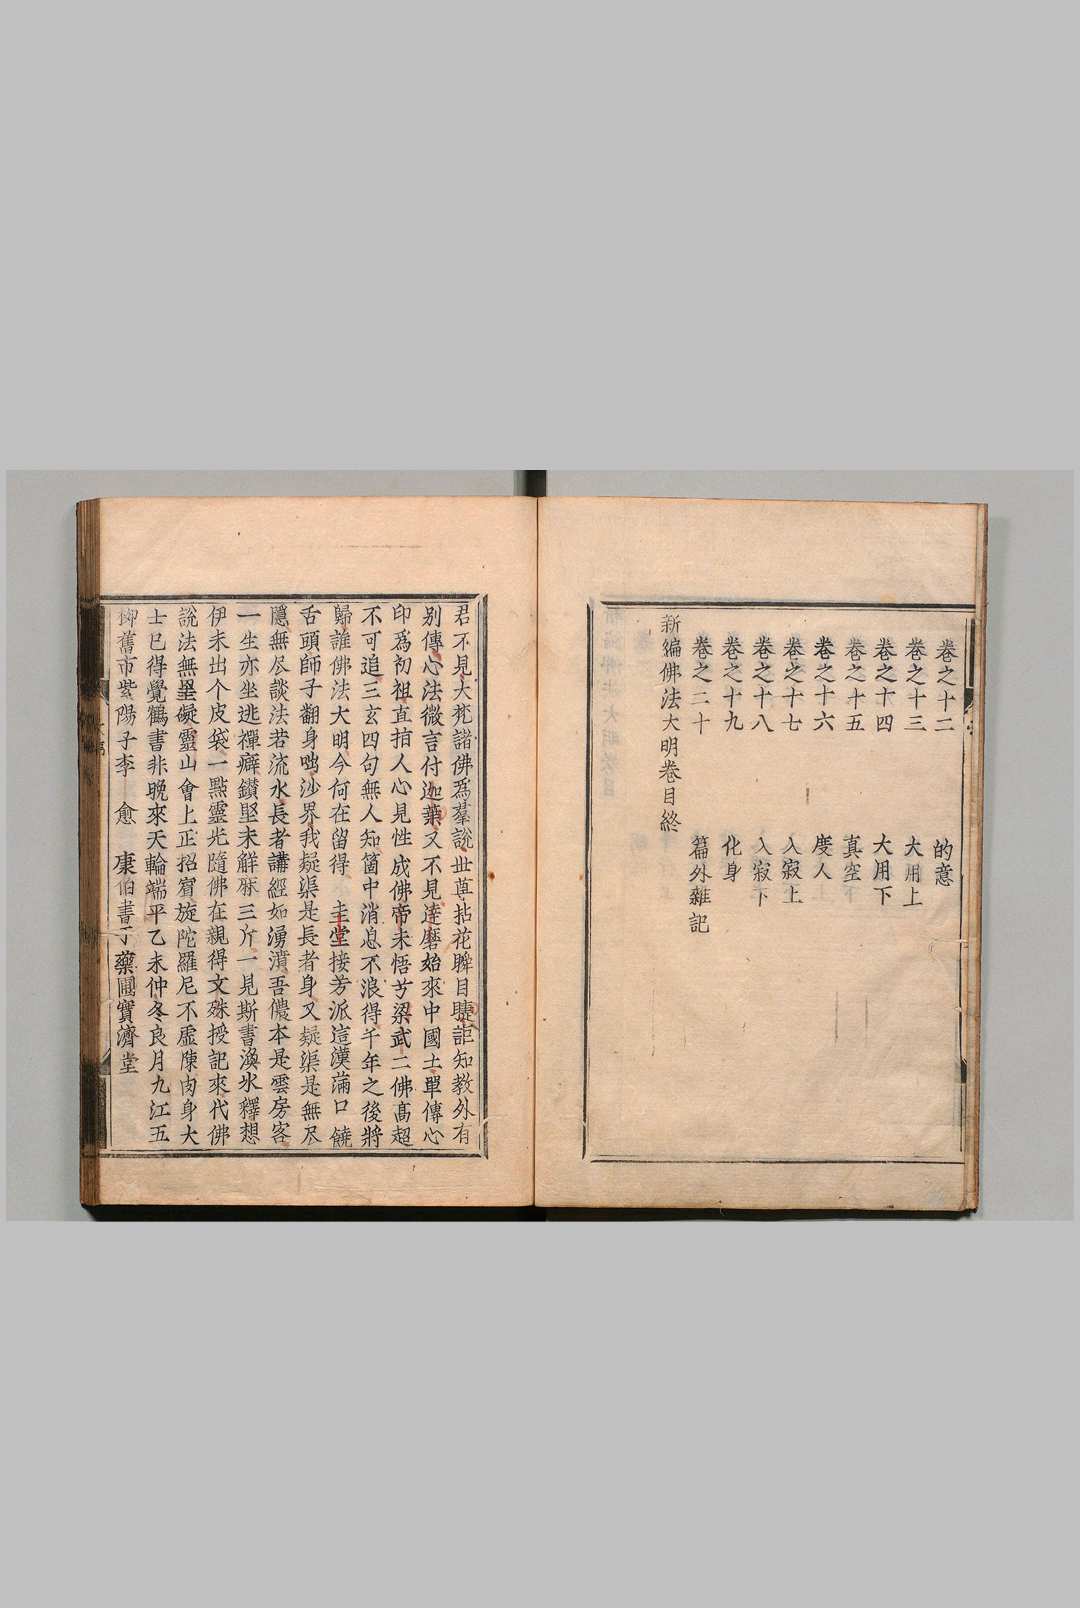 卷之十二 的意
卷之十三 大用上
卷之十四 大用下
卷之十五 真空下
卷之十六 度人
卷之十七 入寂上
卷之十八 入寂下
卷之十九 化身
卷之二十 篇外雜記
新編佛法大明卷目終
君不見大梵諸佛爲羣説世尊拈花瞬目踕詎知教外有
别傳心法微言付迦葉又不見達磨始來中國土單傳心
印爲初祖直指人心見性成佛帝未悟兮梁武二佛髙超
不可追三玄四句無人知箇中消息不浪得千年之後將
歸誰佛法大明今何在留得 圭堂接芳派這漢滿口饒
舌頭師子翻身咄沙界我疑渠是長者身又疑渠是無尽
隱無尽談法若流水長者講經如湧濆吾儂本是雲房客
一生亦坐逃禪癖鑚堅未解麻三斤一見斯書渙氷釋想
伊未出个皮袋一點靈光隨佛在親得文殊授記來代佛
說法無罣礙靈山會上正招賔旋陀羅尼不虛陳肉身大
士已得覺鶴書非晚來天輪端平乙未仲冬良月九江五
栁舊市紫陽子李 愈 康伯書于藥圃寳濟堂